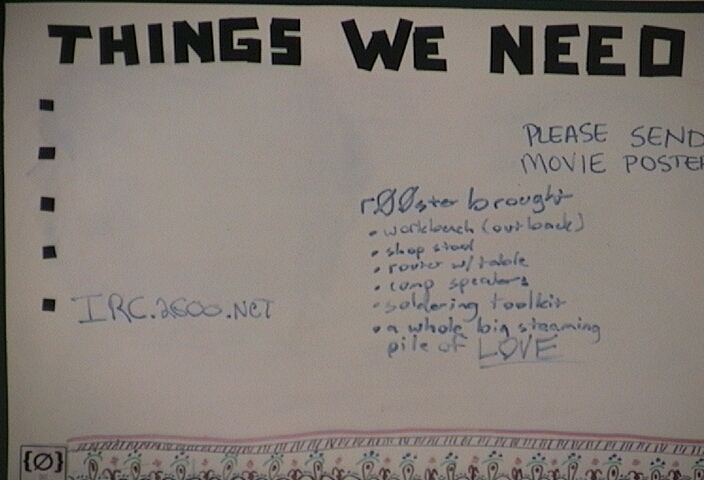 THINGS WE NEED
PLEASE SEND
MOVIE POSTE
rØØster brought
• workbench (out back)
• shop stool
• router w/ table
• comp speakers
• soldering toolkit
• a whole big steaming
pile of LOVE
IRC.2600.NET
{Ø}